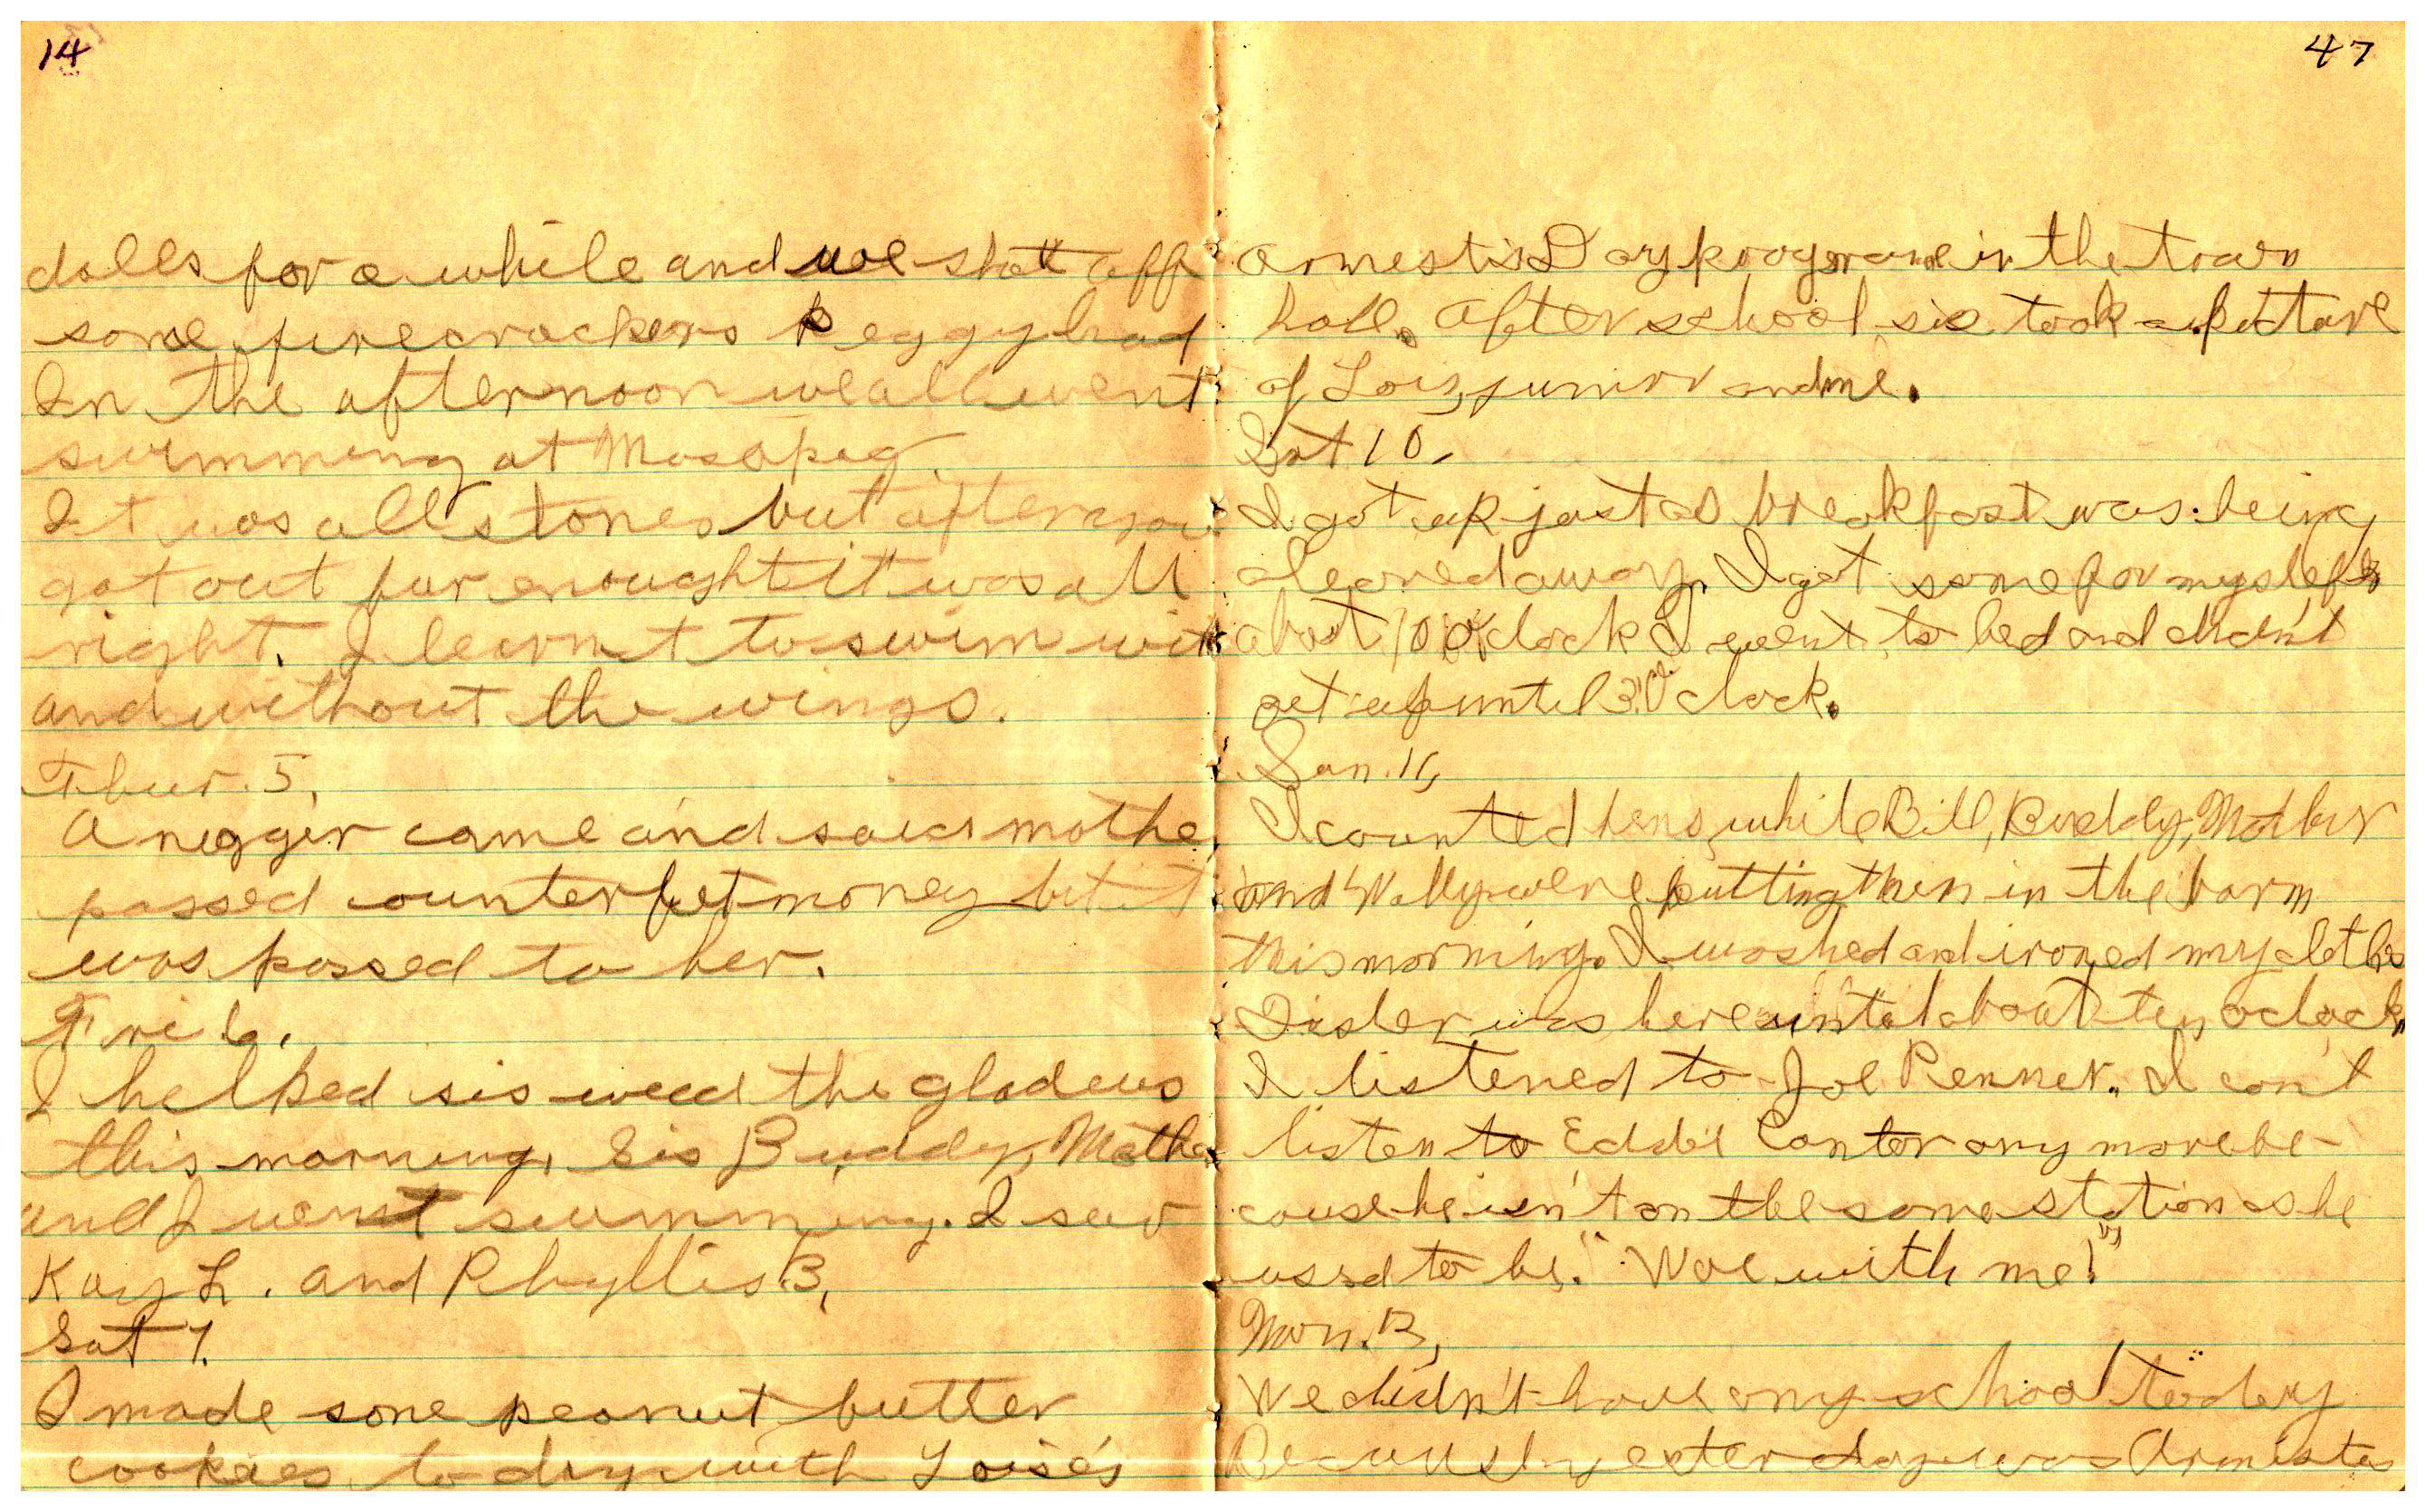 14
dolls for a while and we shot off
some firecrackers Peggy had
In the afternoon we all went
swimming at Masapeg.
It was all stones but after you
got out fur enought it was all
right. I learnt to swim with
and without the wings.
Thur. 5.
A negger came and said mothe
passed counterfet money but it
was passed to her.
Fri 6.
I helped sis weed the gladeus
this morning. Sis Buddy, Mothe
and I went swimming. I saw
Kay L. and Phyllis B.
Sat 7.
I made some peanut butter
cookies to day with Loise's
47
armestis Day programe in the town
hall. After school sis took a picture
of Lois, junior and me.
Sat 10.
I got up just as breakfast was being
cleared away. I got some for myslef
about 10 O'clock I went to bed and didn't
get up until 3 O'clock.
Sun. 11,
I counted hens while Bill, Buddy, Mother
and Wally were putting them in the barn
this morning. I washed and ironed my clothes
Sister was here until about ten oclock
I listened to Joe Penner. I can't
listen to Eddie Canter any more be-
cause he isn't on the same station as he
used to be. "Woe with me!"
Mon. 12,
We didn't have any school today
Because yesterday was Armistes